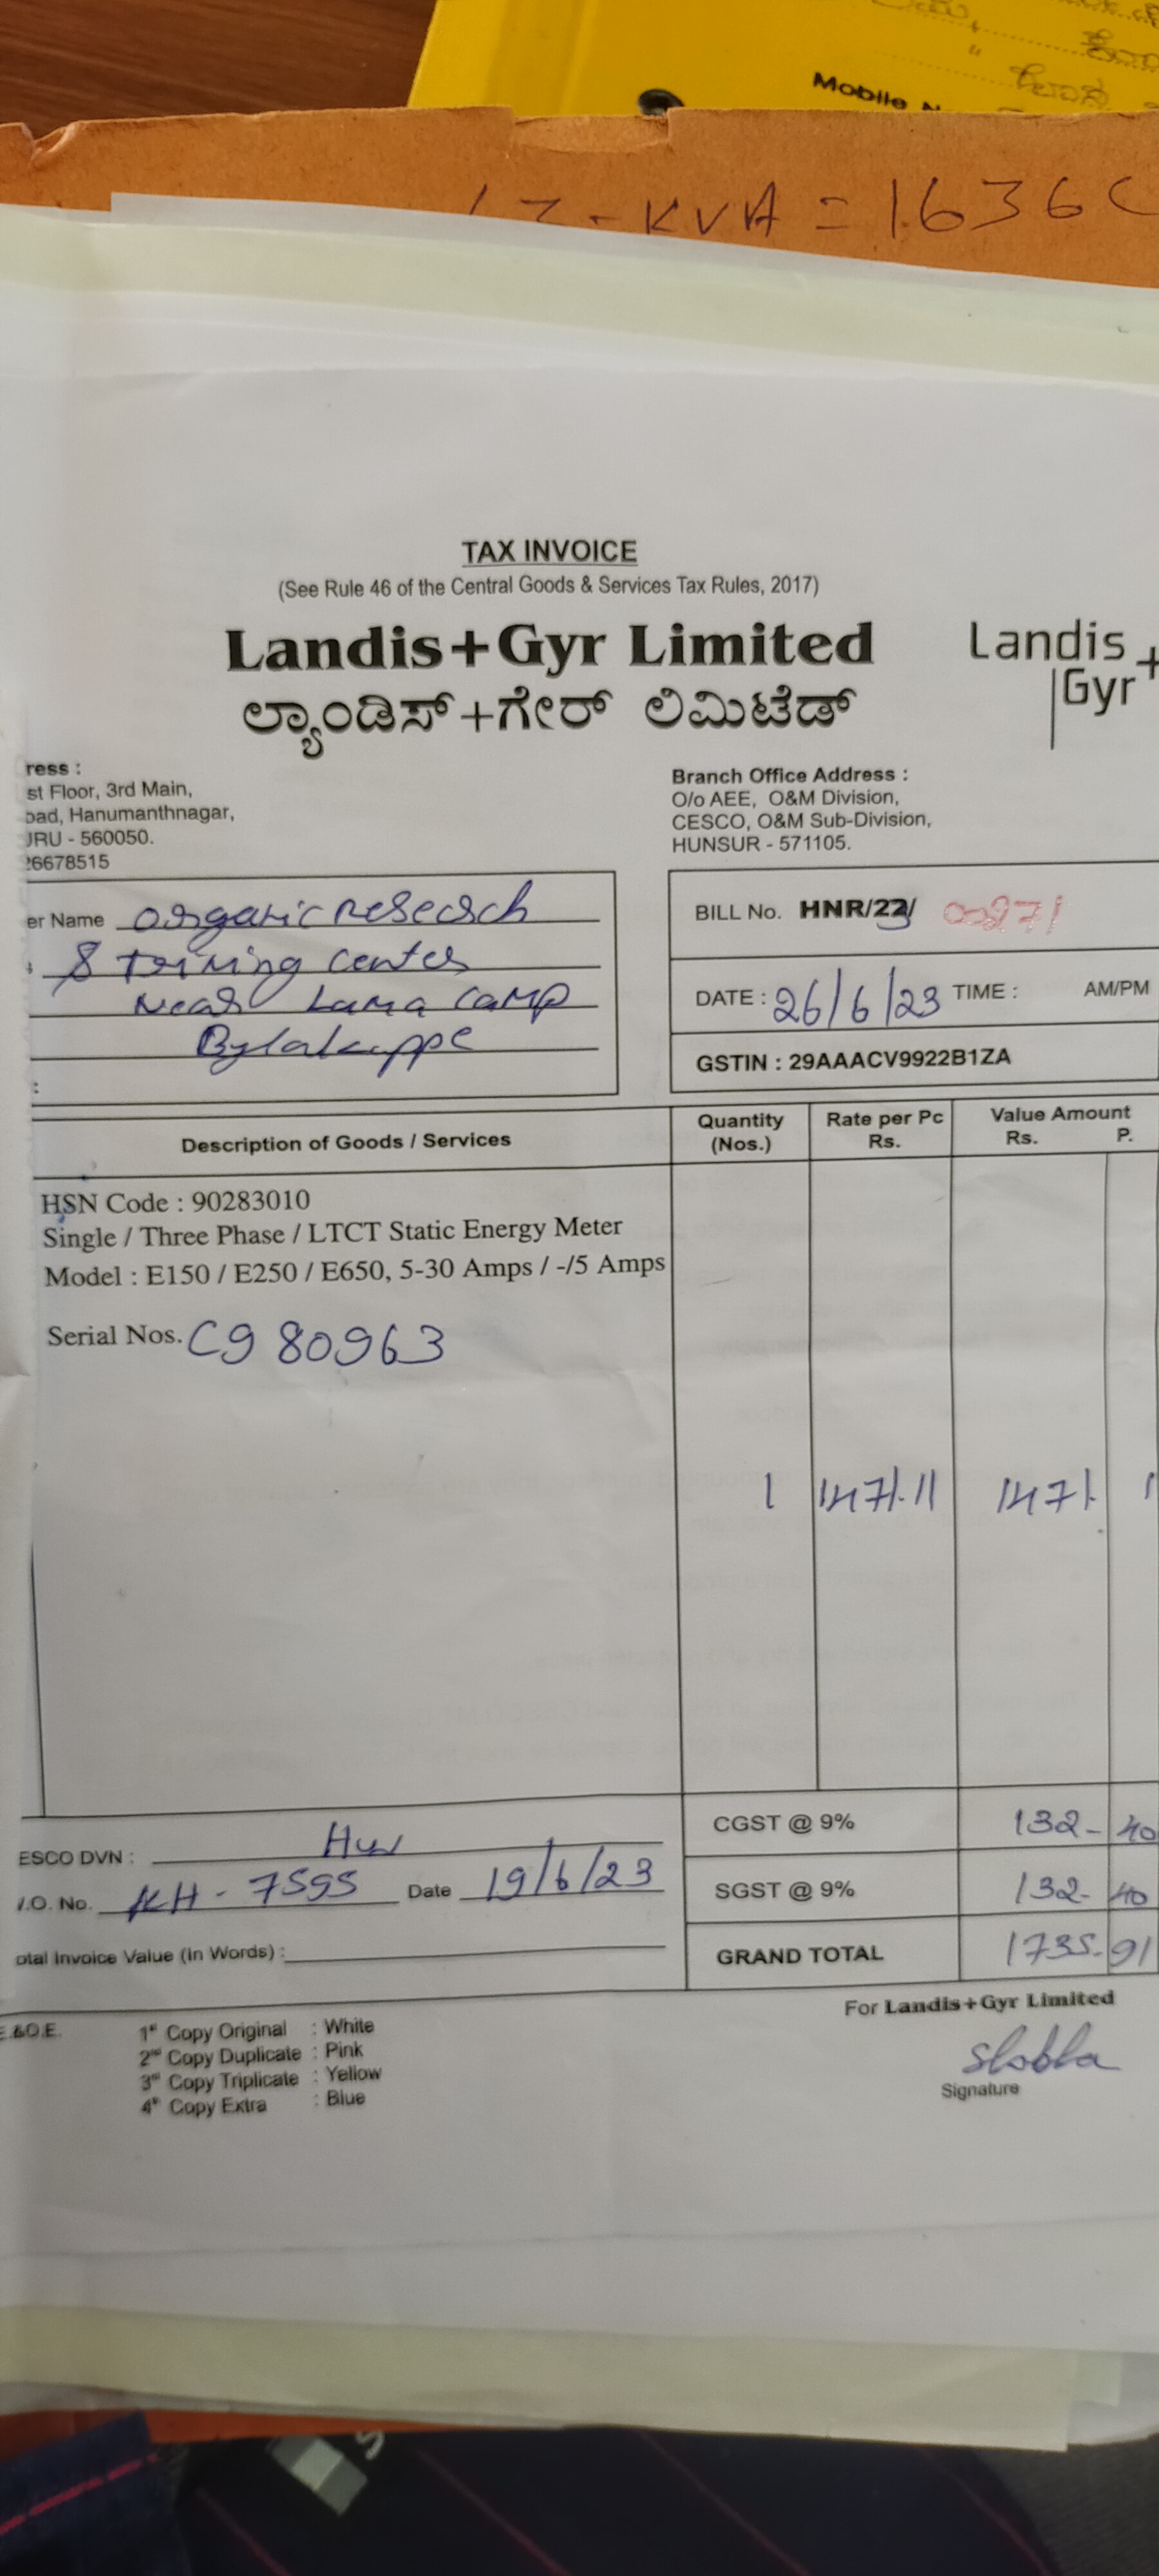 Mobile N
KVA = 1636
TAX INVOICE
(See Rule 46 of the Central Goods & Services Tax Rules, 2017)
Landis+Gyr Limited
ಲ್ಯಾಂಡಿಸ್+ಗೇರ್ ಲಿಮಿಟೆಡ್
Landis
Gyr+
ress :
st Floor, 3rd Main,
oad, Hanumanthnagar,
JRU - 560050.
26678515
Branch Office Address :
O/o AEE, O&M Division,
CESCO, O&M Sub-Division,
HUNSUR - 571105.
er Name organic research
& Trining center
Near Lama Camp
Bylakuppe
BILL No. HNR/23/ 00871
DATE : 26/6/23 TIME : AM/PM
GSTIN : 29AAACV9922B1ZA
Description of Goods / Services
Quantity (Nos.)
Rate per Pc Rs.
Value Amount Rs. P.
HSN Code : 90283010
Single / Three Phase / LTCT Static Energy Meter
Model : E150 / E250 / E650, 5-30 Amps / -/5 Amps
Serial Nos. C9 80963
1 1471.11 1471. 1
CGST @ 9% 132- 40
SGST @ 9% 132- 40
GRAND TOTAL 1735- 91
ESCO DVN :
I.O. No. KH - 7595 Date 19/6/23
otal Invoice Value (In Words) :
For Landis+Gyr Limited
Shobha
Signature
E.&O.E.
1st Copy Original : White
2nd Copy Duplicate : Pink
3rd Copy Triplicate : Yellow
4th Copy Extra : Blue